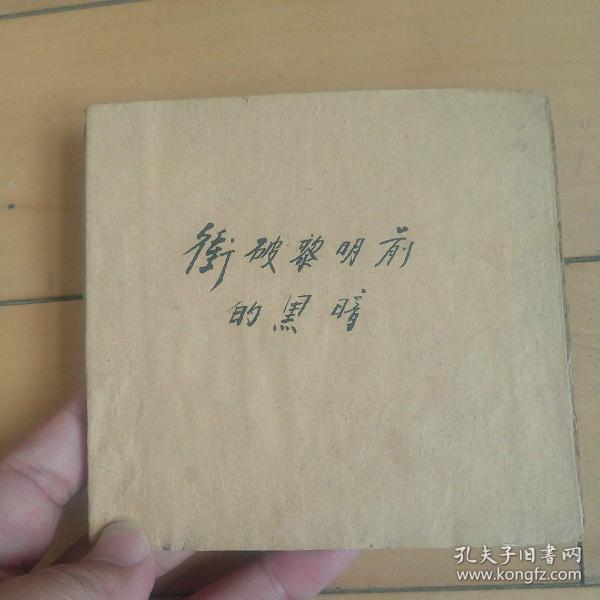 衝破黎明前
的黑暗
孔夫子旧书网
www.kongfz.com